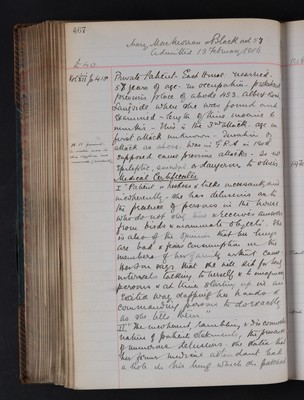 467
Mary Mackinnon or Black aet 57
Admitted 13 February 1906
£40
Private Patient. East House. married.
57 years of age. no occupation. protestant
previous place of abode 453 Albert Road
Langside where she was found and
examined - length of time insane 2
months - This is the 3rd attack. age on
first attack unknown - Duration of
attack as above. Was in G.R.A. in 1900
supposed cause previous attacks - is not
epileptic, suicidal or dangerous to others
Medical Certificates
I "Patient is restless & talks incessantly and
incoherently - she has delusions as to
the presence of persons in the house
who do not & receives answers
from birds & inanimate objects. She
is also of the opinion that her lungs
are bad & fears consumption in the
members of her family without cause
Her son says that she will sit for long
intervals talking to herself & to imaginary
persons & at times starting up in an
excited way clapping her hands &
commanding persons to do exactly
as she tells them"
II "The incoherent, rambling & disconnected
nature of patient's statements, the presence
of numerous delusions, she states that
her former medical attendant had
a hole in his lung which she patched